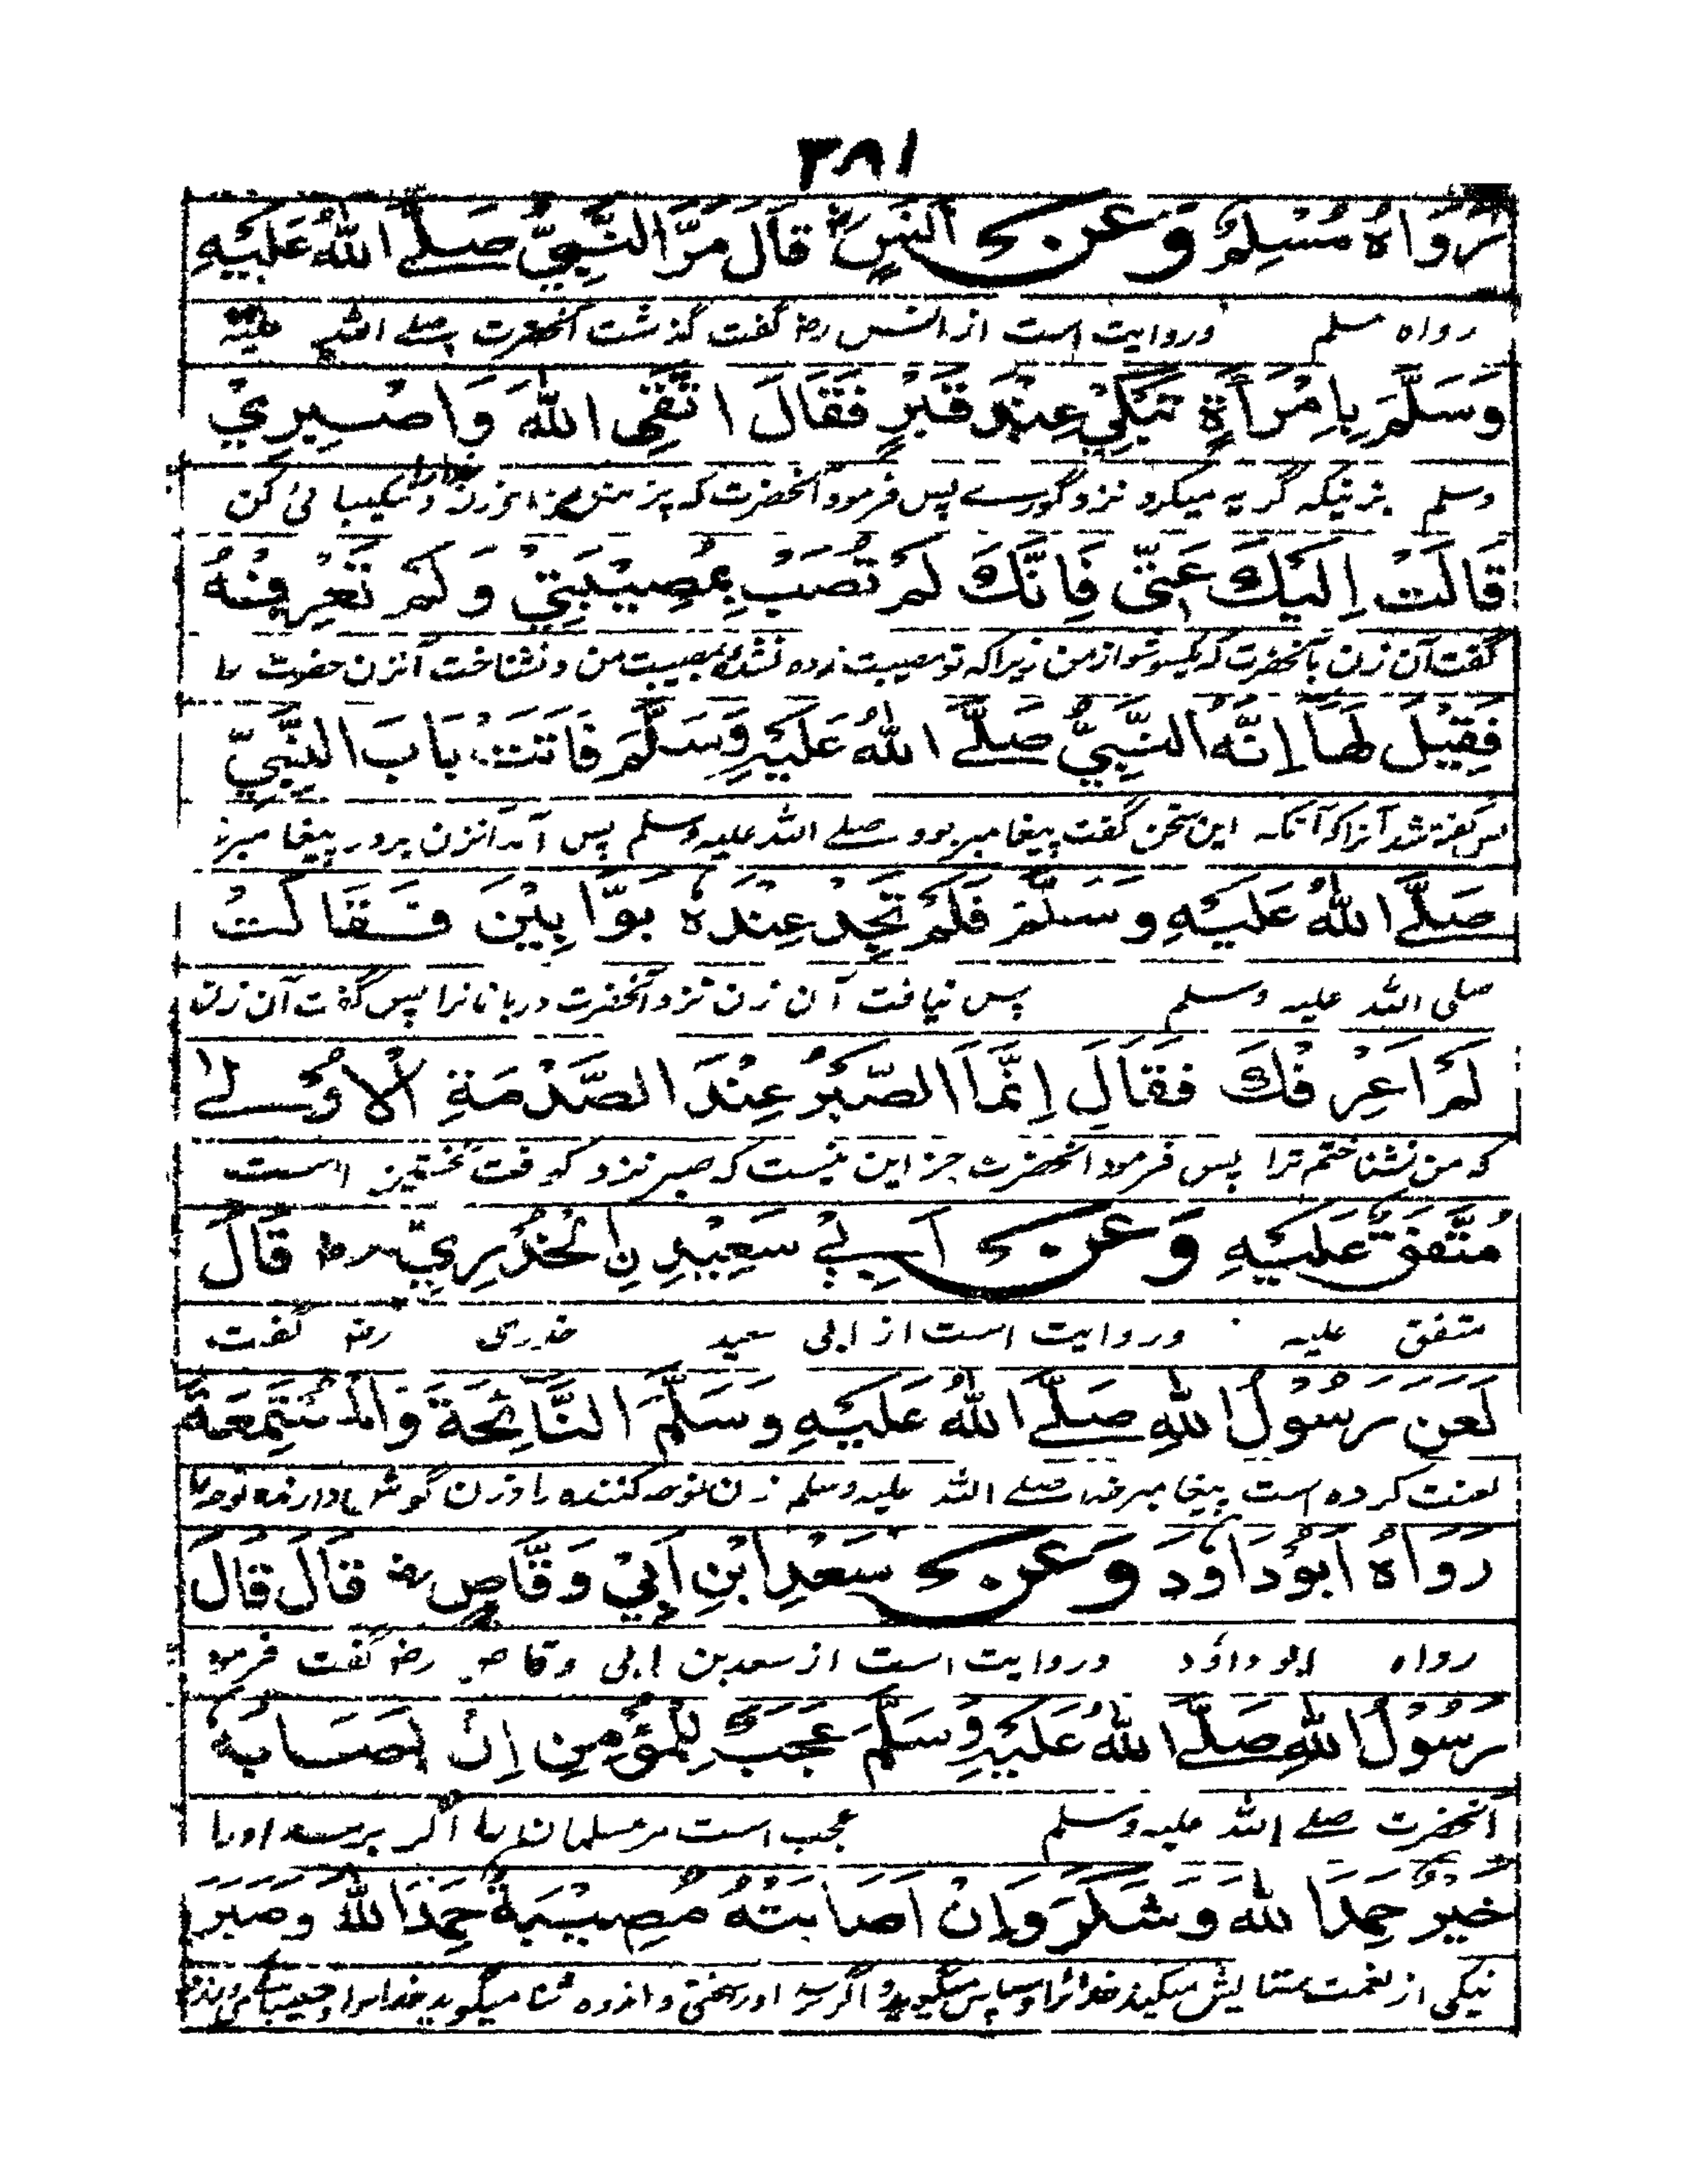 ۳۸۱
رَوَاهُ مُسْلِمٌ وَعَنْ اَنَسٍ رض قَالَ مَرَّ النَّبِيُّ صَلَّے اللهُ عَلَيْهِ
رواه مسلم وروایت است از انس رض گفت گذشت آنحضرت صلے الله علیه
وَسَلَّمَ بِامْرَأَةٍ تَبْكِيْ عِنْدَ قَبْرٍ فَقَالَ اتَّقِى اللهَ وَاصْبِرِيْ
وسلم بزنیکه گریه میکرد نزد گورے پس فرمود آنحضرت که بپرهیز خدا را و شکیبائی کن
قَالَتْ اِلَيْكَ عَنِّى فَاِنَّكَ لَمْ تُصَبْ بِمُصِيْبَتِيْ وَلَمْ تَعْرِفْهُ
گفت آن زن بآنحضرت که یکسو شو از من زیراکه تو مصیبت زده نشده بمصیبت من و نشناخت آنزن حضرت را
فَقِيْلَ لَهَا اِنَّهُ النَّبِيُّ صَلَّے اللهُ عَلَيْهِ وَسَلَّمَ فَاَتَتْ بَابَ النَّبِيِّ
پس گفته شد آنزا که آنکه این سخن گفت پیغامبر بود صلے الله علیه وسلم پس آمد آنزن بر در پیغامبر
صَلَّے اللهُ عَلَيْهِ وَسَلَّمَ فَلَمْ تَجِدْ عِنْدَهُ بَوَّابِيْنَ فَقَالَتْ
صلی الله علیه وسلم پس نیافت آن زن نزد آنحضرت دربانانرا پس گفت آن زن
لَمْ اَعْرِفْكَ فَقَالَ اِنَّمَا الصَّبْرُ عِنْدَ الصَّدْمَةِ الْاُوْلٰے
که من نشناختم ترا پس فرمود آنحضرت جز این نیست که صبر نزد کوفت نخستین است
مُتَّفَقٌ عَلَيْهِ وَعَنْ اَبِيْ سَعِيْدِنِ الْخُدْرِيِّ رض قَالَ
متفق علیه وروایت است از ابی سعید خدری رض گفت
لَعَنَ رَسُوْلُ اللهِ صَلَّے اللهُ عَلَيْهِ وَسَلَّمَ النَّائِحَةَ وَالْمُسْتَمِعَةَ
لعنت کرده است پیغامبر خدا صلے الله علیه وسلم زن نوحه کننده را و زن گوش دارنده نوحه را
رَوَاهُ اَبُوْ دَاوٗدَ وَعَنْ سَعْدِ ابْنِ اَبِيْ وَقَّاصٍ رض قَالَ قَالَ
رواه ابو داؤد وروایت است از سعد بن ابی وقاص رض گفت فرمود
رَسُوْلُ اللهِ صَلَّے اللهُ عَلَيْهِ وَسَلَّمَ عَجَبٌ لِلْمُؤْمِنِ اِنْ اَصَابَهُ
آنحضرت صلے الله علیه وسلم عجب است مر مسلمانرا اگر برسد او را
خَيْرٌ حَمِدَ اللهَ وَشَكَرَ وَاِنْ اَصَابَتْهُ مُصِيْبَةٌ حَمِدَ اللهَ وَصَبَرَ
نیکی از نعمت ستایش میکند خدا را و سپاس میگوید و اگر رسد او را سختی و اندوه ثنا میگوید خدا را و